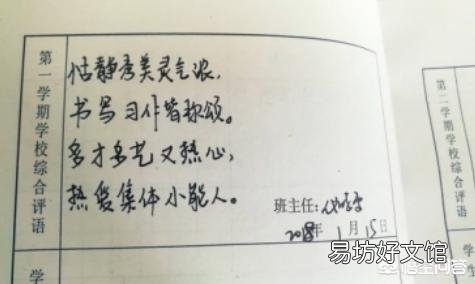 第一学期学校综合评语
恬静秀美灵气浓,
书写习作皆称颂。
多才多艺又热心,
热爱集体小能人。
班主任:
2018年1月15日
第二学期学校综合评语
学
学
易坊好文馆